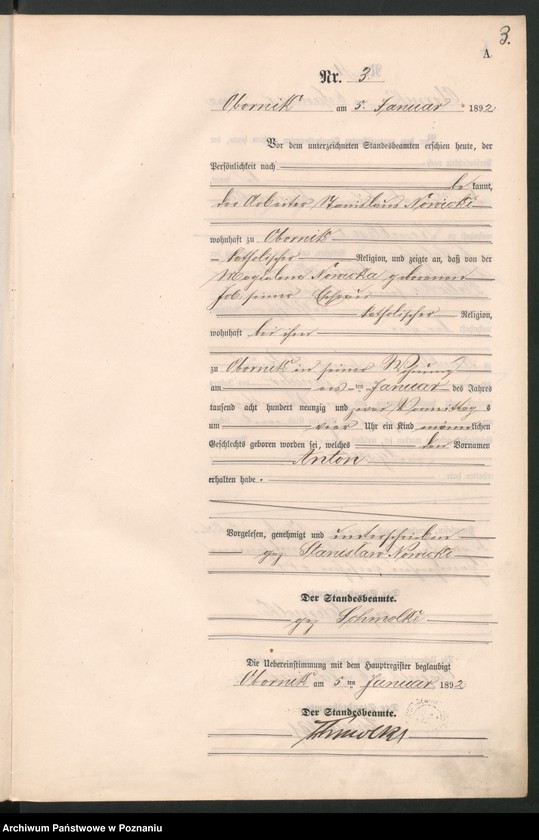 3.
A.
Nr. 3
Obornik am 5. Januar 1892
Vor dem unterzeichneten Standesbeamten erschien heute, der
Persönlichkeit nach
be kannt,
der Arbeiter Stanislaus Nowicki
wohnhaft zu Obornik
katholischer Religion, und zeigte an, daß von der
Magdalena Nowicka geborenen
seiner Ehefrau
katholischer Religion,
wohnhaft bei ihm
zu Obornik in seiner Wohnung
am ten Januar des Jahres
tausend acht hundert neunzig und zwei Vormittag s
um vier Uhr ein Kind männlichen
Geschlechts geboren worden sei, welches den Vornamen
Anton
erhalten habe.
Vorgelesen, genehmigt und unterschrieben
gez Stanislaw Nowicki
Der Standesbeamte.
gez Schmolke
Die Uebereinstimmung mit dem Hauptregister beglaubigt
Obornik am 5 ten Januar 1892
Der Standesbeamte.
Schmolke
Archiwum Państwowe w Poznaniu